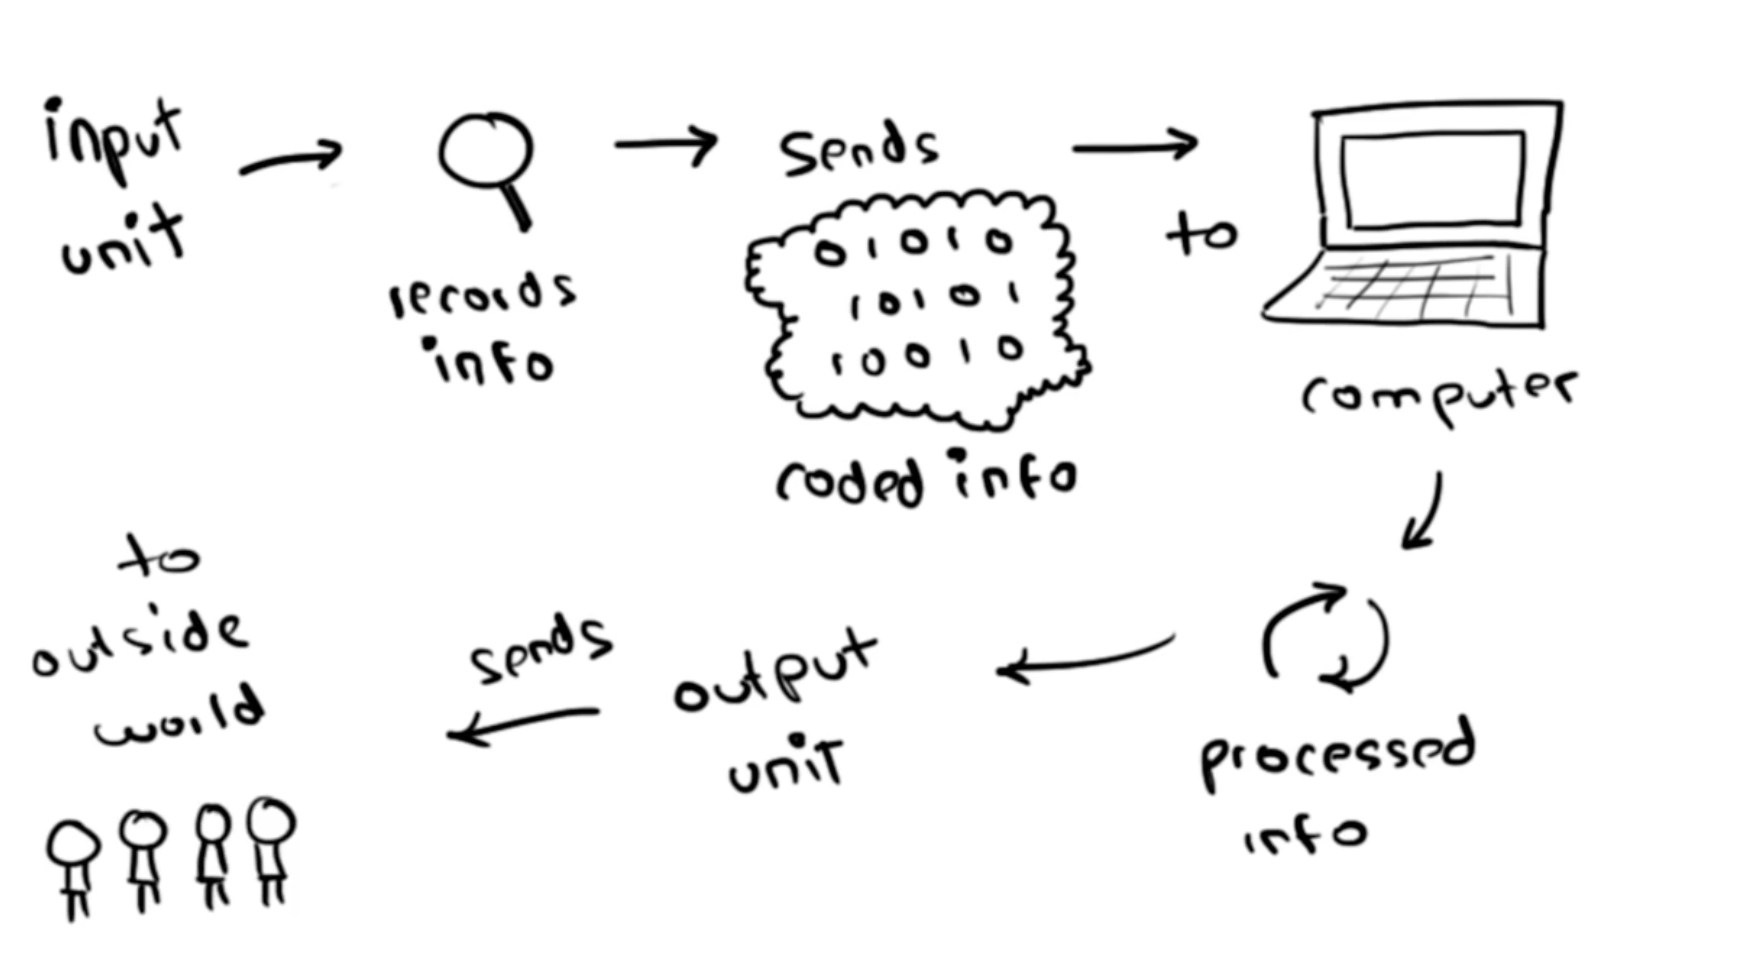 input
unit
records
info
sends
01010
10101
10010
coded info
to
computer
processed
info
output
unit
sends
to
outside
world